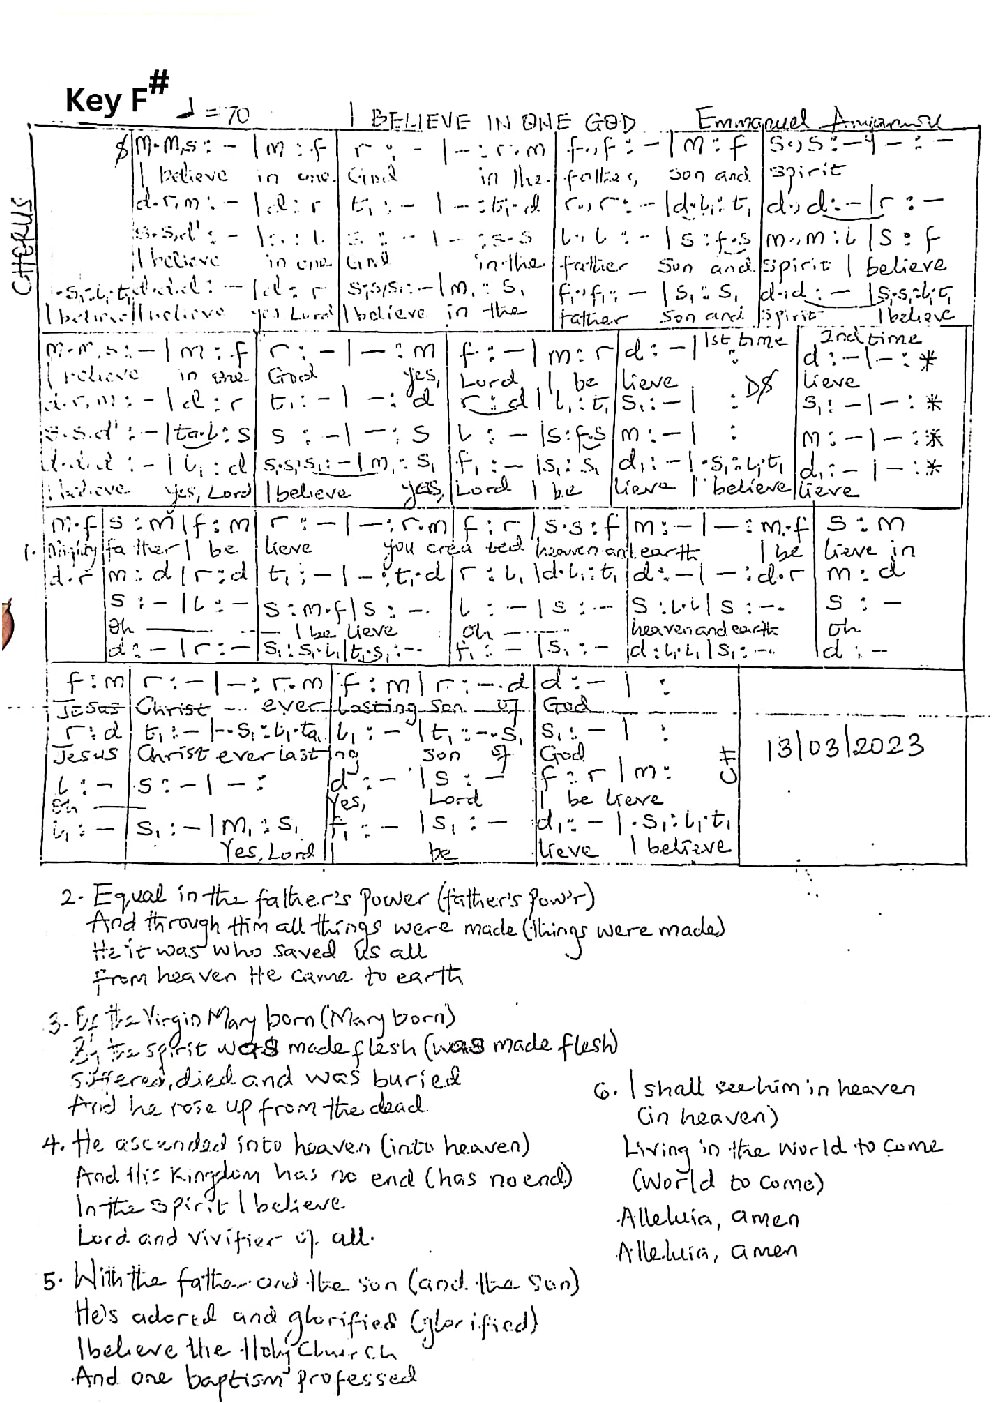 Key F#
♩ = 70 I BELIEVE IN ONE GOD Emmanuel
CHORUS
$ m.m,s : - | m : f r : - | - : r.m f.,f : - | m : f s.,s : - | - : -
I believe in one God in the father, son and spirit
d.r,m : - | d : r t₁ : - | - : t₁.d r.,r : - | d.l₁ : t₁ d.,d : - | r : -
s.s,d' : - s : - | - : s.s l.,l : - | s : f.s m.,m : l | s : f
I believe in one God in the father son and spirit I believe
.s₁ : l₁.t₁ d.d.d : - | d : r s₁s₁s₁ : - | m₁ : s₁ f₁.,f₁ : - | s₁ : s₁ d.,d : - | s₁.s₁ : l₁.t₁
I believe I believe yes Lord I believe in the father son and spirit I believe
m.m,s : - | m : f r : - | - : m f : - | m : r d : - | 1st time : 2nd time d : - | - : *
I believe in one God yes, Lord I be lieve D$ lieve
d.r,m : - | d : r t₁ : - | - : d r : d | l₁ : t₁ s₁ : - | : s₁ : - | - : *
s.s,d' : - | ta.l : s s : - | - : s l : - | s : f.s m : - | : m : - | - : *
d.d,d : - | l₁ : d s₁s₁s₁ : - | m₁ : s₁ f₁ : - | s₁ : s₁ d₁ : - | .s₁ : l₁.t₁ d₁ : - | - : *
I believe yes, Lord I believe yes, Lord I be lieve I believe lieve
m.f s : m | f : m r : - | - : r.m f : r | s.s : f m : - | - : m.f s : m
1. Mighty father I be lieve you crea ted heaven and earth I be lieve in
d.r m : d | r : d t₁ : - | - : t₁.d r : l₁ | d.l₁ : t₁ d : - | - : d.r m : d
s : - | l : - s : m.f | s : -. l : - | s : -. s : l.l | s : -. s : -
Oh I be lieve oh heaven and earth Oh
d : - | r : - s₁ : s₁.l₁ | t₁.s₁ : -. f₁ : - | s₁ : - d : l₁.l₁ | s₁ : -. d : -
f : m r : - | - : r.m f : m | r : -.d d : - | :
Jesus Christ ever lasting son of God
r : d t₁ : - | -.s₁ : l₁.ta₁ l₁ : - | t₁ : -.s₁ s₁ : - | :
Jesus Christ everlasting son of God
l : - s : - | - : d' : - | s : - f : r | m :
Oh Yes, Lord I be lieve
CH
l₁ : - s₁ : - | m₁ : s₁ f₁ : - | s₁ : - d₁ : - | .s₁ : l₁.t₁
Yes, Lord I be lieve I believe
13/03/2023
2. Equal in the father's power (father's pow'r)
And through Him all things were made (things were made)
He it was who saved us all
From heaven He came to earth
3. Of the Virgin Mary born (Mary born)
By the spirit was made flesh (was made flesh)
Suffered, died and was buried
And he rose up from the dead
4. He ascended into heaven (into heaven)
And His Kingdom has no end (has no end)
In the spirit I believe
Lord and vivifier of all.
5. With the father and the son (and the son)
He's adored and glorified (glorified)
I believe the Holy Church
And one baptism professed
6. I shall see him in heaven
(in heaven)
Living in the world to come
(World to come)
Alleluia, amen
Alleluia, amen